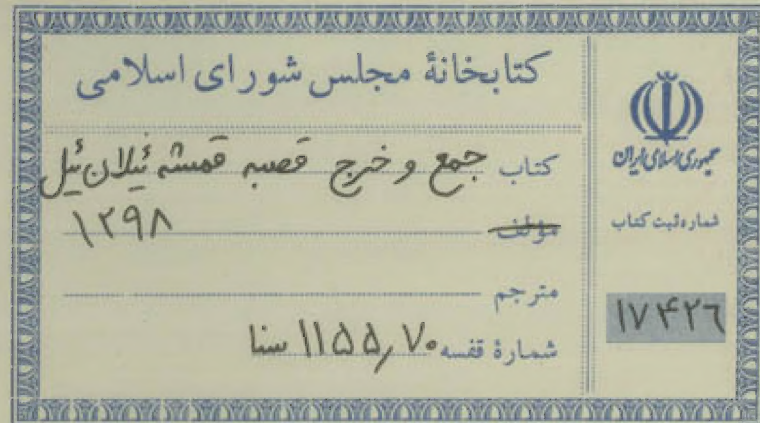 کتابخانهٔ مجلس شورای اسلامی
جمهوری اسلامی ایران
شماره ثبت کتاب
۱۷۴۲۶
کتاب جمع و خرج قصبه قمشه ئیلان ئیل
مؤلف ۱۲۹۸
مترجم
شمارهٔ قفسه ۱۱۵۵٫۷۰ سنا